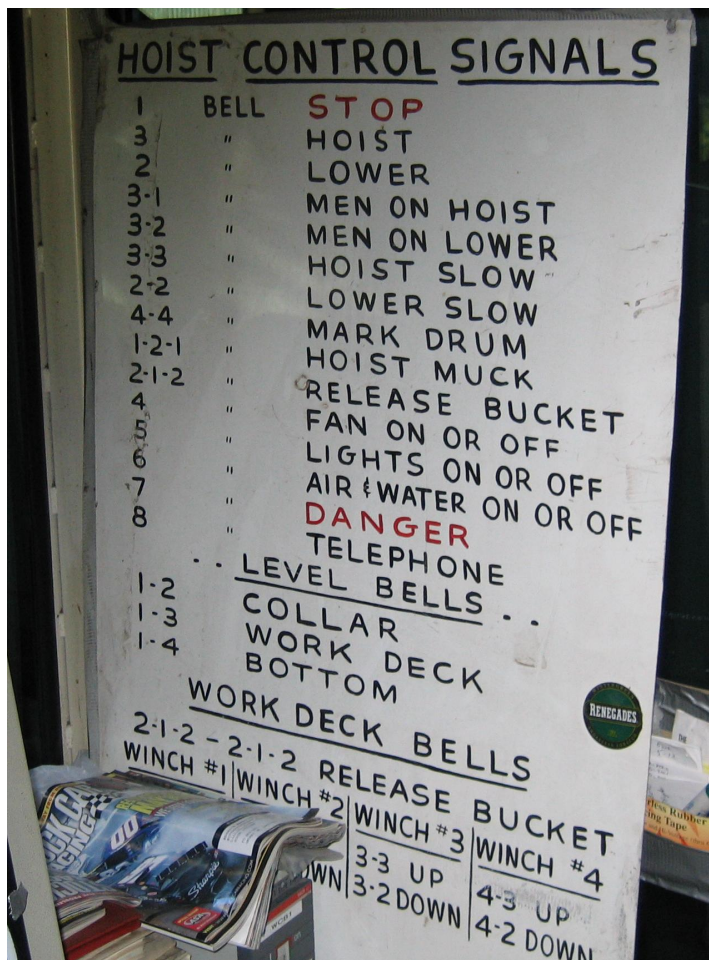 HOIST CONTROL SIGNALS
1 BELL STOP
3 " HOIST
2 " LOWER
3-1 " MEN ON HOIST
3-2 " MEN ON LOWER
3-3 " HOIST SLOW
2-2 " LOWER SLOW
4-4 " MARK DRUM
1-2-1 " HOIST MUCK
2-1-2 " RELEASE BUCKET
4 " FAN ON OR OFF
5 " LIGHTS ON OR OFF
6 " AIR & WATER ON OR OFF
7 " DANGER
8 " TELEPHONE
. . LEVEL BELLS . .
1-2 COLLAR
1-3 WORK DECK
1-4 BOTTOM
WORK DECK BELLS
2-1-2 - 2-1-2 RELEASE BUCKET
WINCH #1 WINCH #2 WINCH #3 WINCH #4
3-3 UP 4-3 UP
3-2 DOWN 4-2 DOWN
RENEGADES
00
Sharpie
Rubber
Tape